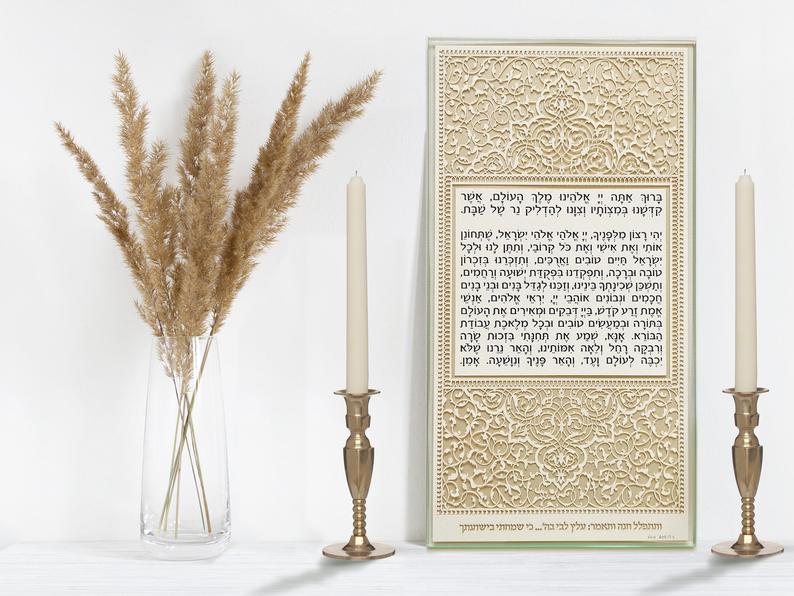 בָּרוּךְ אַתָּה יְיָ אֱלֹהֵינוּ מֶלֶךְ הָעוֹלָם, אֲשֶׁר
קִדְּשָׁנוּ בְּמִצְוֹתָיו וְצִוָּנוּ לְהַדְלִיק נֵר שֶׁל שַׁבָּת.
יְהִי רָצוֹן מִלְּפָנֶיךָ, יְיָ אֱלֹהַי אֱלֹהֵי יִשְׂרָאֵל, שֶׁתְּחוֹנֵן
אוֹתִי וְאֶת אִישִׁי וְאֶת כֹּל קְרוֹבַי, וְתִתֵּן לָנוּ וּלְכָל
יִשְׂרָאֵל חַיִּים טוֹבִים וַאֲרֻכִּים, וְתִזְכְּרֵנוּ בְּזִכְרוֹן
טוֹבָה וּבְרָכָה, וְתִפְקְדֵנוּ בִּפְקֻדַּת יְשׁוּעָה וְרַחֲמִים,
וְתַשְׁכֵּן שְׁכִינָתְךָ בֵּינֵינוּ, וְזַכֵּנוּ לְגַדֵּל בָּנִים וּבְנֵי בָנִים
חֲכָמִים וּנְבוֹנִים אוֹהֲבֵי יְיָ, יִרְאֵי אֱלֹהִים, אַנְשֵׁי
אֱמֶת זֶרַע קֹדֶשׁ, בַּיְיָ דְּבֵקִים וּמְאִירִים אֶת הָעוֹלָם
בְּתוֹרָה וּבְמַעֲשִׂים טוֹבִים וּבְכָל מְלֶאכֶת עֲבוֹדַת
הַבּוֹרֵא. אָנָּא, שְׁמַע אֶת תְּחִנָּתִי בִּזְכוּת שָׂרָה
וְרִבְקָה רָחֵל וְלֵאָה אִמּוֹתֵינוּ, וְהָאֵר נֵרֵנוּ שֶׁלֹּא
יִכְבֶּה לְעוֹלָם וָעֶד, וְהָאֵר פָּנֶיךָ וְנִוָּשֵׁעָה. אָמֵן.
ותתפלל חנה ותאמר: עלץ לבי בה'... כי שמחתי בישועתך